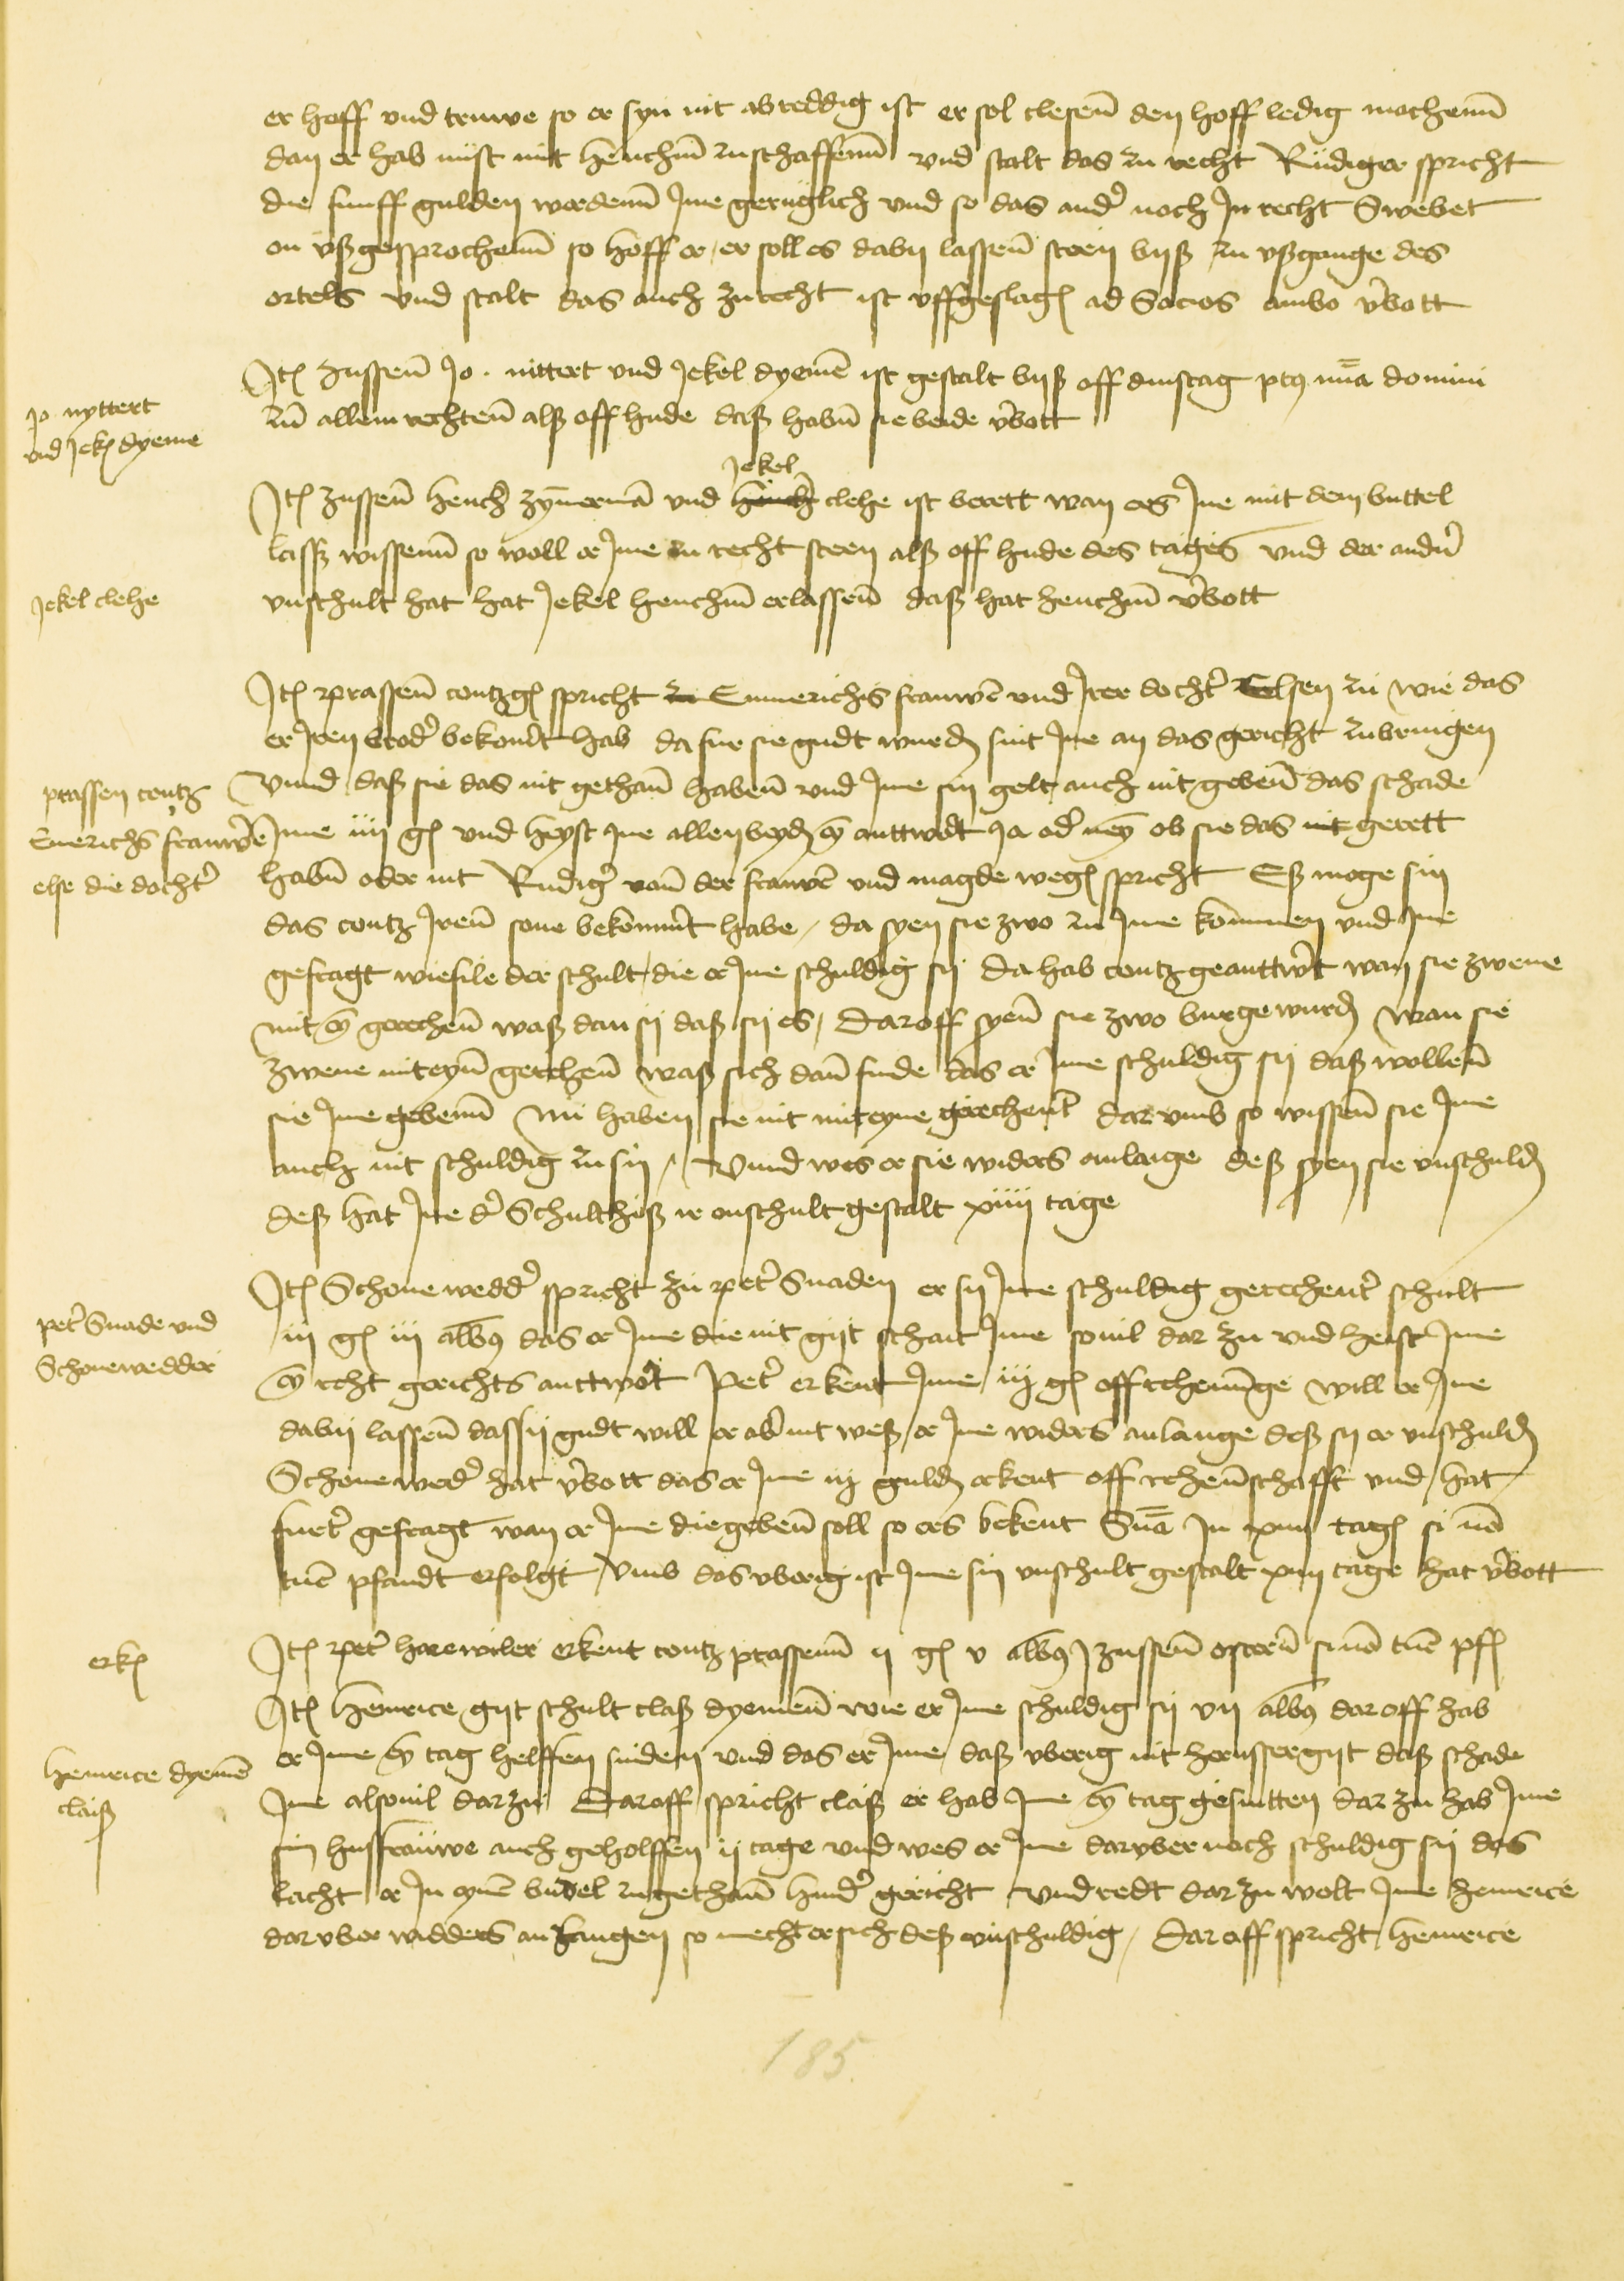 er hoff vnd truwe so er syn nit abreddig ist er sol clesen̄ den hoff ledig machenn̄
dan er hab nust mit Henchin̄ zuschaffenn̄ vnd stalt das zu recht Rudiger spricht
die funff gulden werdenn̄ Ime geruglich vnd so das and' noch In recht Swebet
on vßgesprochenn̄ so hoff er / er soll es dabij lassen̄ steen bijß zu vßgange des
ortels vnd stalt das auch zu recht ist vffgeslaḡ ad Socios ambo v'bott
Jt̄ zussen̄ Jo. nittert vnd Jekel dyemē ist gestalt bijß off dinstag pt9 nūa domini
zū allem rechten̄ alß off hude daß habn̄ sie beide v'bott
Jo nyttert
vnd Jek̄ dyeme
Jekel
Jt̄ zussen̄ Hench' zȳmermā vnd Hench' clehe ist berett wan ers Ime mit dem buttel
lasß wissenn̄ so woll er Ime zu recht steen alß off hude des tages vnd der andn̄'
vnschult hat hat Jekel Henchin̄ erlassen̄ daß hat Henchin̄ v'bott
Jekel clehe
Jt̄ prassen̄ contzḡ spricht zu Emmerichis frauwē vnd Irer docht' Elsen zu wie das
er Iren brod' bekom't hab da fur sie gudt wurd̄ sint Ime an das gericht zubringen
Vnnd daß sie das nit gethan̄ haben̄ vnd Ime sin gelt auch nit geben̄ das schade
Ime iiij gl̄ vnd heyst Ime allen beyd̄ eȳ anttwedt Ja od' neȳ ob sie das nit gerett
habn̄ oder nit Rudig' van̄ der frauwē vnd magde weḡ spricht Eß moge sin
prassen contz
Emerichs frauwē
else die docht'
das contz Iren̄ sone bekomm't habe / da syen sie zwo zu Ime kommen vnd Ime
gefragt wiefile der schult die er Ime schuldig sij Da hab contz geanttw't wan sie zwene
mit eȳ gerechen̄ waß dan sij daß sij es / Daroff syen̄ sie zwo burge wurd̄ wan sie
zwene mit eyn̄ gerechen̄ waß sich dan̄ finde das er Ime schuldig sij daß wollen̄
sie Ime gebenn̄ Nu haben sie nit mit eyne gerechent dar vmb so wissen̄ sie Ime
auch nit schuldig zu sin / Vnnd wes er sie widers anlange deß syen sie vnschuld̄
deß hat Ine d' Schulthiß ir onschult gestalt xiiij tage
Jt̄ Schonewedd' spricht zu pet' Snaden er sij Ime schuldig gerechent' schult
iij gl̄ iij alb9 das er Ime die nit gijt schait Ime souil dar zu vnd heist Ime
eȳ recht gerichts anttw't Pet' erkent Ime iij gl̄ off rechenn̄ge will er Ime
dabij lassen̄ das sij gudt will er ab' nit weß er Ime widers anlange deß sij er vnschuld̄
Schonewed' hat v'bott das er Ime iij guld̄ erkent off rechen̄schafft vnd hat
furt' gefragt wan er Ime die geben̄ soll so ers bekent Snā In xiiij taḡ si nō
tūc pfandt erfolgt / vmb das vberig ist Ime sin vnschult gestalt xiiij tage hat v'bott
pet' Snade vnd
Schonewedder
Jt̄ pet' harewiler erkent contz prassenn̄ ij gl̄ v alb9 zussen̄ ostern̄ si nō tūc pf̄
erk̄
Jt̄ Henrice gijt schult claß dyemen̄ wie er Ime schuldig sij vij alb9 dar off hab
er Ime eȳ tag helffen sniden vnd das er Ime daß vberig nit herusser gijt daß schade
Ime alsouil dar zu Daroff spricht claß er hab Ime eȳ tag gesnitten dar zu hab Ime
sin husfrauwe auch geholffen ij tage vnd wes er Ime daruber noch schuldig sij das
lacht er In eynē budel zugethan̄ hind' gericht vnd redt dar zu wolt Ime Henrice
dar vber widders anlangen so mecht er sich deß vnschuldig / Dar off spricht Henrice
Henrice dyemē
claiß
185